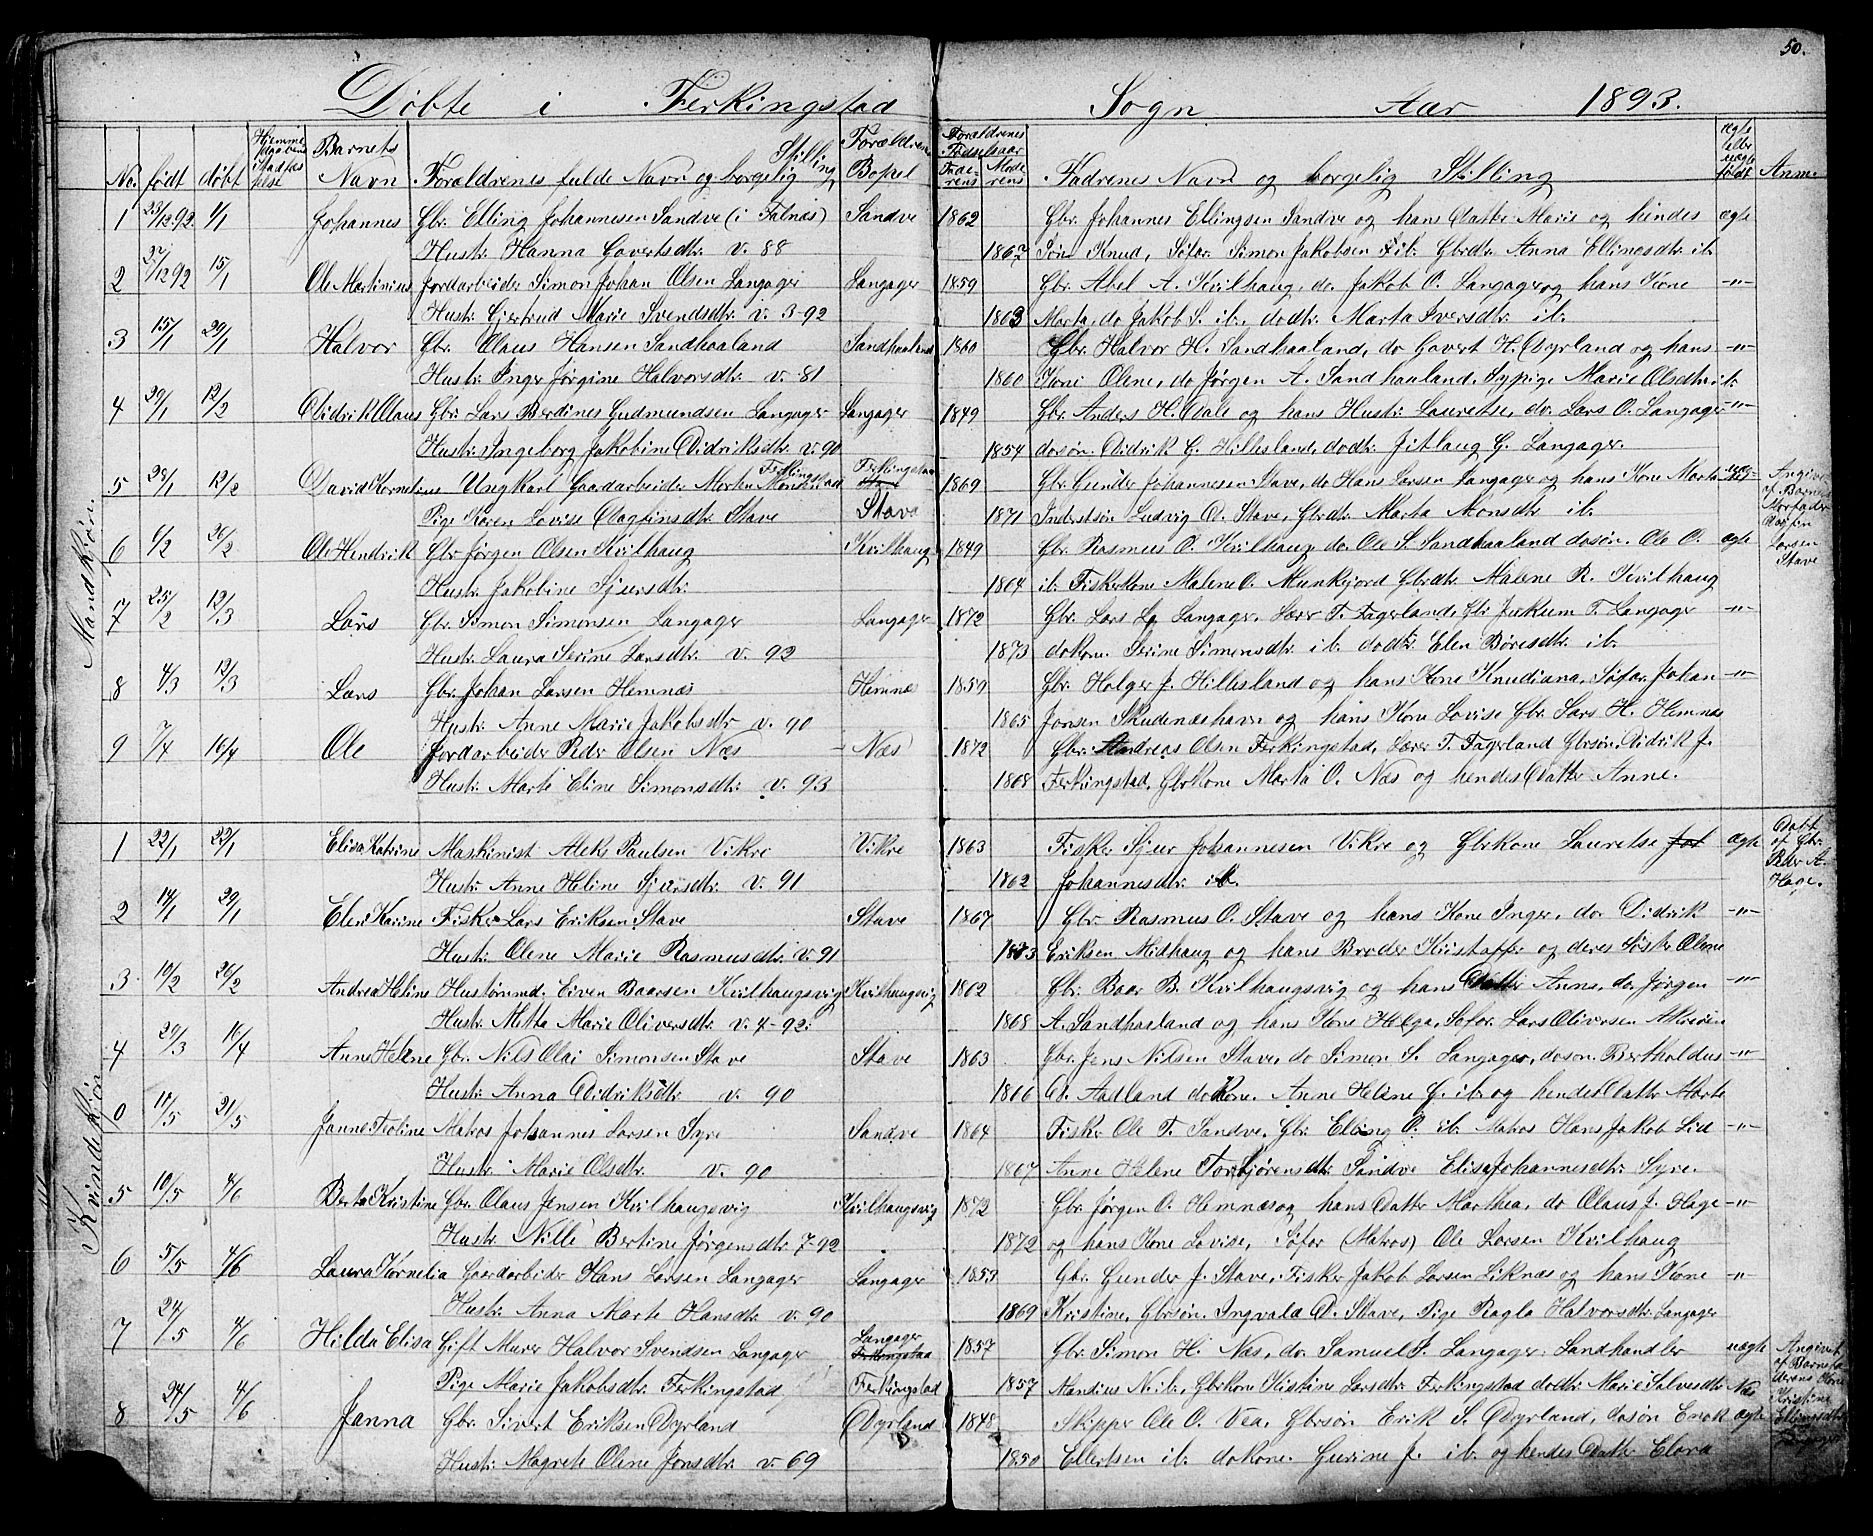 50.
Døbte i Ferkingstad Sogn Aar 1893.
No. født døbt Barnets Navn Forældrenes fulde Navn og borgelig Stilling Forældrenes Bopel Forældrenes Fødselsaar Faderens Moderens Fadrenes Navn og borgelig Stilling ægte eller uægte født Anm.
Mandkjøn.
1 23/12 92. 1/1 Johannes Gbr. Elling Johannesen Sandve (i Falnæs) Sandve 1862 Gbr. Johannes Ellingsen Sandve og hans Datter Marie og hindes ægte
Hustr. Hanna Govertsdtr. v. 88 1867 Søn Knud, Søfar. Simon Jakobsen ib. Gbrdtr. Anna Ellingsdtr. ib.
2 /12 92 15/1 Ole Martinius Jordarbeider Simon Johan Olsen Langager Langager 1859 Gbr. Abel A. Kvilhaug, do. Jakob O. Langager og hans Kone -"-
Hustr. Gjertrud Marie Svendsdtr. v. 3-92 1863 Marta, do Jakob S. ib. dodtr. Marta Iversdtr. ib.
3 15/1 29/1 Halvor Gbr. Olaus Hansen Sandhaaland Sandhaaland 1860 Gbr. Halvor H. Sandhaaland, do Govert H. Dyrland og hans -"-
Hustr. Inger Jørgine Halvorsdtr. v. 81 1860 Kone Olene, do Jørgen A. Sandhaaland. Sypige Marie Olsdtr. ib.
4 29/1 12/2 Didrik Olaus Gbr. Lars Berdines Gudmundsen Langager Langager 1849 Gbr. Anders H. Dale og hans Hustr. Lauretse, do. Lars O. Langager -"-
Hustr. Ingeborg Jakobine Didriksdtr. v. 90 1854 dosøn. Didrik G. Hillesland, dodtr. Jitlaug G. Langager.
5 28/1 12/2 David Kornelius Ungkarl Gaardarbeider Morten Monsen Ferkingstad Ferkingstad 1869 Gbr. Gunder Johannesen Stave, do Hans Larsen Langager og hans Kone Marta uæg- Angivet af Barnets Morfader
Pige Karen Lovise Stave Stave 1871 Inderstsøn Ludvig D. Stave, Gbrdtr. Marta Monsdtr. ib. Larsen Stave
6 1/2 26/2 Ole Hendrik Gbr. Jørgen Olsen Kvilhaug Kvilhaug 1849 Gbr. Rasmus O. Kvilhaug do. Ole S. Sandhaaland dosøn. Ole O. ægte
Hustr. Jakobine Sjursdtr. 1864 ib. Fiskerkone Malene O. Munkejord Gbrdtr. Malene R. Kvilhaug
7 25/2 12/3 Lars Gbr. Simon Simonsen Langager Langager 1872 Gbr. Lars L. Langager, Lærer T. Fagerland, Gbr. T. Langager -"-
Hustr. Laura Serine Larsdtr. v. 92 1873 dokone. Serine Simonsdtr. ib. dodtr. Elen Børesdtr. ib.
8 4/3 12/3 Lars Gbr. Johan Larsen Hemnæs Hemnæs 1859 Gbr. Holger J. Hillesland og hans Kone Knudiana, Søfar. Johan -"-
Hustr. Anne Marie Jakobsdtr v. 90 1865 Jonsen Skudenæshavn og hans Kone Lovise Gbr. Lars H. Hemnæs
9 7/4 16/4 Ole Jordarbeider Peder Olsen Næs Næs 1872 Gbr. Andreas Olsen Ferkingstad, Lærer T. Fagerland Gbrsøn. Didrik J.
Hustr. Marte Eline Simonsdtr. v. 93 1868 Ferkingstad, Gbrkone Marta O. Næs og hendes Datter Anne.
Kvindekjøn
1 22/1 22/1 Elisa Katrine Maskinist Aleks Paulsen Vikre Vikre 1863 Fisker Sjur Johannesen Vikre og Gbrkone Lauretse ægte Døbt af Gbr. Peter A. Hage.
Hustr. Anne Heline Sjursdtr. v. 91 1862 Johannesdtr. ib.
2 14/1 29/1 Elen Karine Fisker Lars Eriksen Stave Stave 1867 Gbr. Rasmus O. Stave og hans Kone Inger, do. Didrik -"-
Hustr. Olene Marie Rasmusdtr. v. 91 1873 Eriksen Midhaug og hans Broder Kristoffer og deres Søster Olene
3 10/2 26/2 Andrea Heline Hustømmd. Eiven Baarsen Kvilhaugsvig Kvilhaugsvig 1862 Gbr. Baar B. Kvilhaugsvig og hans Datter Anna, do. Jørgen -"-
Hustr. Metta Marie Oliversdtr. v. 4-92. 1868 A. Sandhaaland og hans Kone Helga, Søfar. Lars Oliversen
4 29/3 16/4 Anne Helene Gbr. Nils Olai Simonsen Stave Stave 1863 Gbr. Jens Nilsen Stave, do Simon S. Langager, dosøn. Bertholdus -"-
Hustr. Anna Didriksdtr. v. 90 1866 Aadland dokone. Anne Helene G. ib. og hendes Datter Marte
0 11/5 21/5 Janne Teoline Matros Johannes Larsen Syre Sandve 1864 Fisker Ole T. Sandve, Gbr. Elling O. ib. Matros Hans Jakob Lid -"-
Hustr. Marie Olsdtr. v. 90 1867 Anne Helene Torbjørensdtr. Sandve Elisa Johannesdtr. Syre.
5 10/5 4/6 Berta Kristine Gbr. Olaus Jensen Kvilhaugsvig Kvilhaugsvig 1872 Gbr. Jørgen O. Hemnæs og hans Datter Marthea, do Olaus J. Hage -"-
Hustr. Nille Bertine Jørgensdtr. 7-92 1872 og hans Kone Lovise, Søfar (Matros) Ole Larsen Kvilhaug
6 5/5 4/6 Laura Kornelia Gaardarbeider Hans Larsen Langager Langager 1859 Gbr. Gunder J. Stave, Fisker Jakob Larsen Liknæs og hans Kone -"-
Hustr. Anna Marte Hansdtr. v. 90 1869 Kristine, Gbrsøn. Ingvald D. Stave, Pige Ragla Halvorsdtr. Langager
7 24/5 4/6 Hilda Elisa Gift Murer Halvor Svendsen Langager Langager Ferkingstad 1857 Gbr. Simon H. Næs, do. Samuel S. Langager. Landhandler uægte Angivet af Barnefaderens Kone Kristine Ellingsdtr. Langager
Pige Marie Jakobsdtr. Ferkingstad Ferkingstad 1857 Mandius N. ib., Gbrkone Kistine Larsdtr. Ferkingstad dodtr. Marie Salvesdtr. Næs
8 24/5 4/6 Janna Gbr. Sivert Eriksen Dyrland Dyrland 1848 Skipper Ole O. Vea, Gbrsøn Erik S. Dyrland, dosøn Enok ægte
Hustr. Magrete Oline Jonsdtr. v. 69 1850 Ellertsen ib. dokone. Gurine J. ib. og hendes Datter Elora